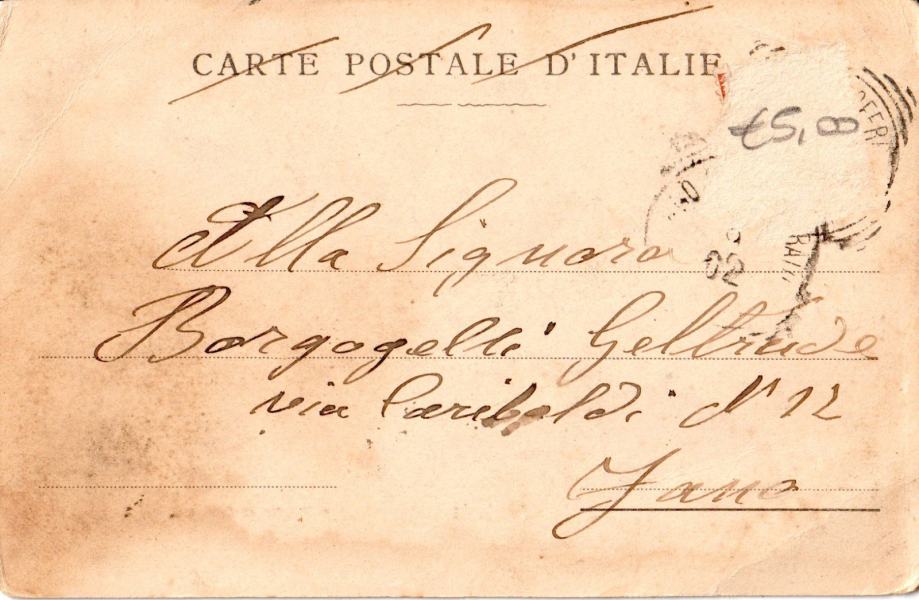 CARTE POSTALE D'ITALIE
€5,00
02
Alla Signora
Borgogelli Geltrude
via Garibaldi N 12
Fano